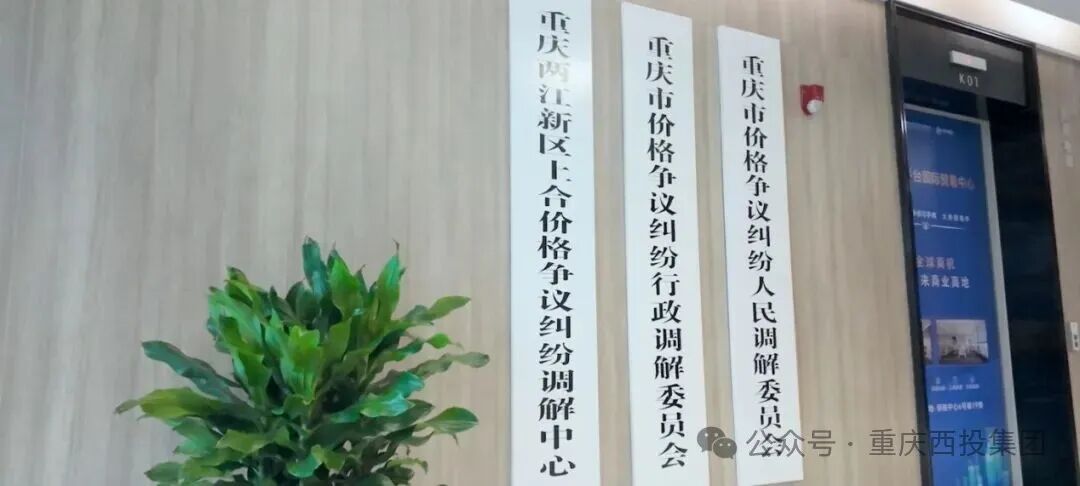 重庆两江新区上合价格争议纠纷调解中心
重庆市价格争议纠纷行政调解委员会
重庆市价格争议纠纷人民调解委员会
K01
台国际贸易中心
全球商机
来商业高地
公众号 · 重庆西投集团